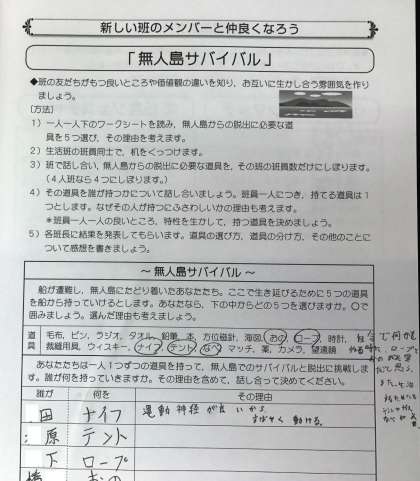 新しい班のメンバーと仲良くなろう
「無人島サバイバル」
◆班の友だちがもつ良いところや価値観の違いを知り、お互いに生かし合う雰囲気を作り
ましょう。
〔方法〕
1）一人一人下のワークシートを読み、無人島からの脱出に必要な道
具を5つ選び、その理由を考えます。
2）生活班の班員同士で、机をくっつけます。
3）班で話し合い、無人島からの脱出に必要な道具を、その班の班員数だけにしぼります。
（4人班なら4つにしぼります。）
4）その道具を誰が持つかについて話し合いましょう。班員一人につき、持てる道具は1
つとします。なぜその人が持つにふさわしいかの理由も考えます。
＊班員一人一人の良いところ、特性を生かして、持つ道具を決めましょう。
5）各班長に結果を発表してもらいます。道具の選び方、道具の分け方、その他のことに
ついて感想を書きましょう。
～ 無人島サバイバル ～
船が遭難し、無人島にたどり着いたあなたたち。ここで生き延びるために5つの道具
を船から持っていけるとします。あなたなら、下の中からどの5つを選びますか。〇で
囲みましょう。選んだ理由も考えましょう。
道具
毛布、ビン、ラジオ、タオル、鉛筆、本、方位磁針、海図、おの、ロープ、時計、
裁縫用具、ウィスキー、ナイフ、テント、なべ、マッチ、薬、カメラ、望遠鏡
あなたたちは一人1つずつの道具を持って、無人島でのサバイバルと脱出に挑戦しま
す。誰が何を持っていきますか。その理由を含めて、話し合って決めてください。
誰が 何を その理由
田 ナイフ 運動神経が良いから
すばやく動ける。
原 テント
下 ロープ
おの